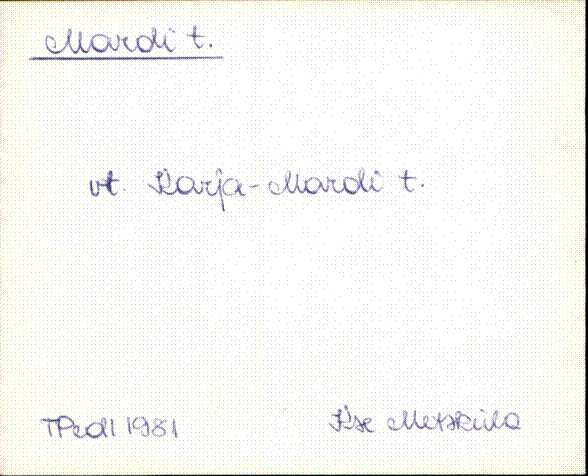 Mardi t.
vt. Karja-Mardi t.
TPedI 1981 Kse Metsküla